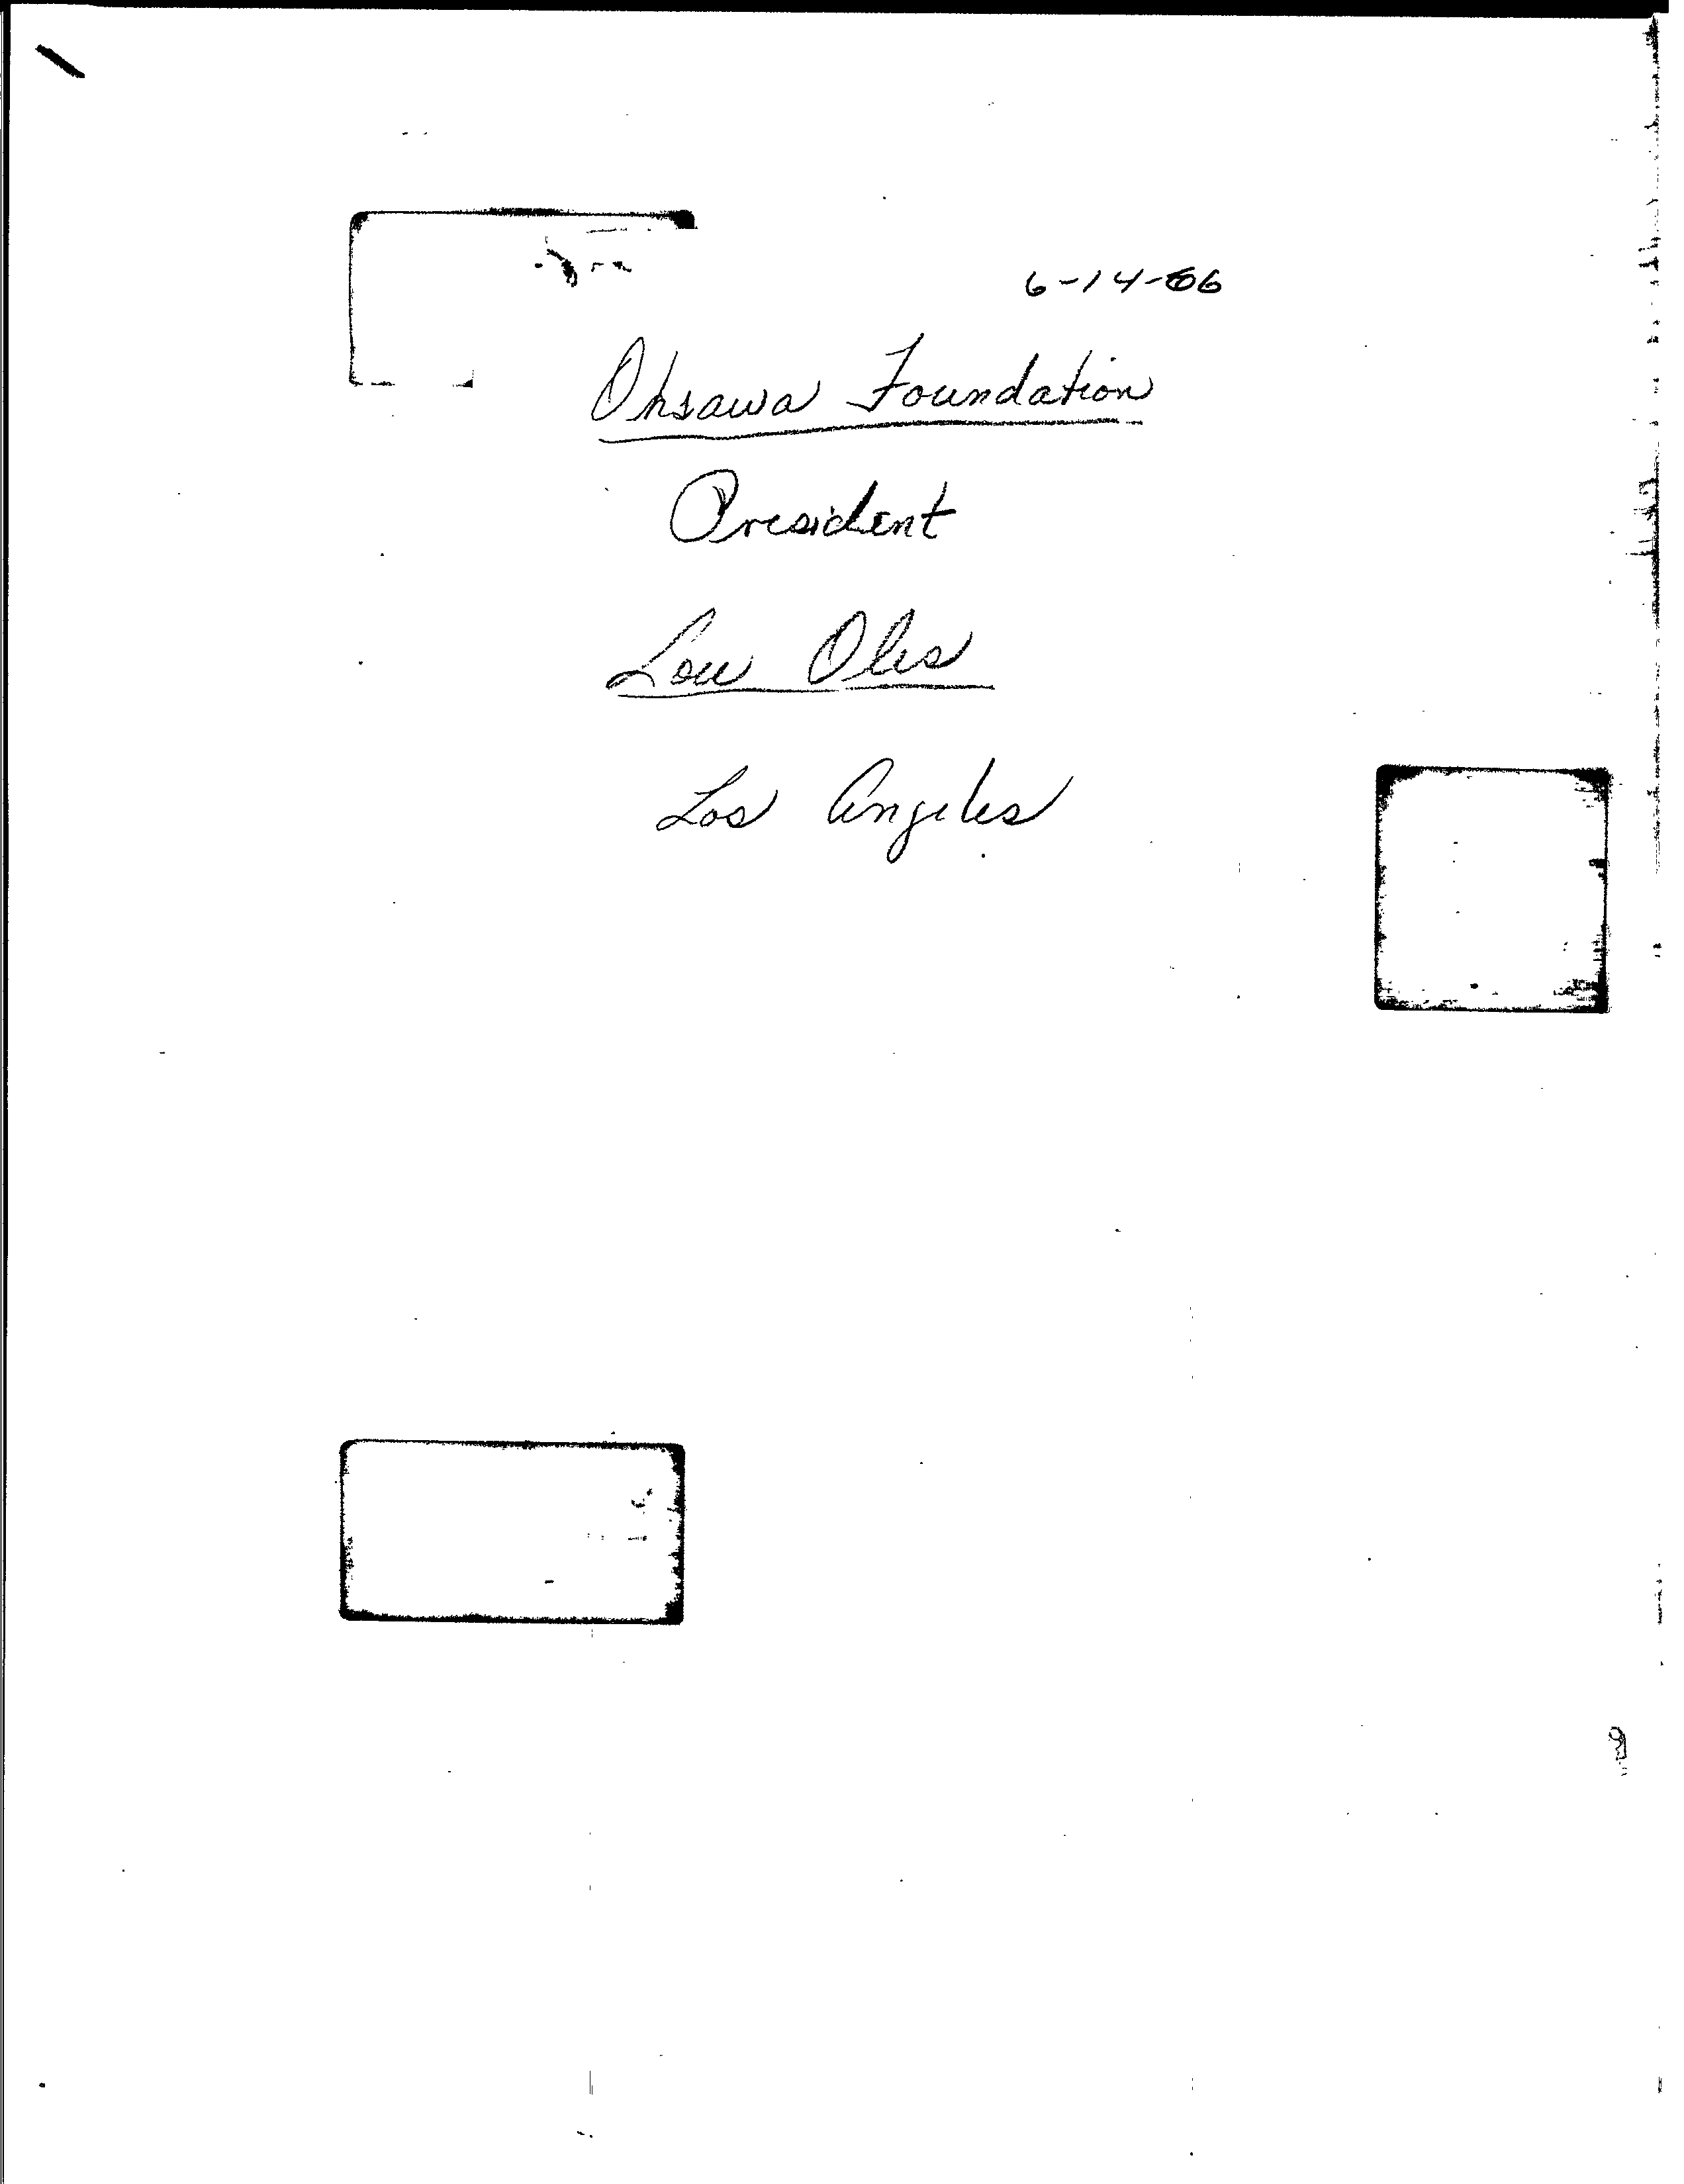 6-14-66
Ohsawa Foundation
President
Lou Oles
Los Angeles